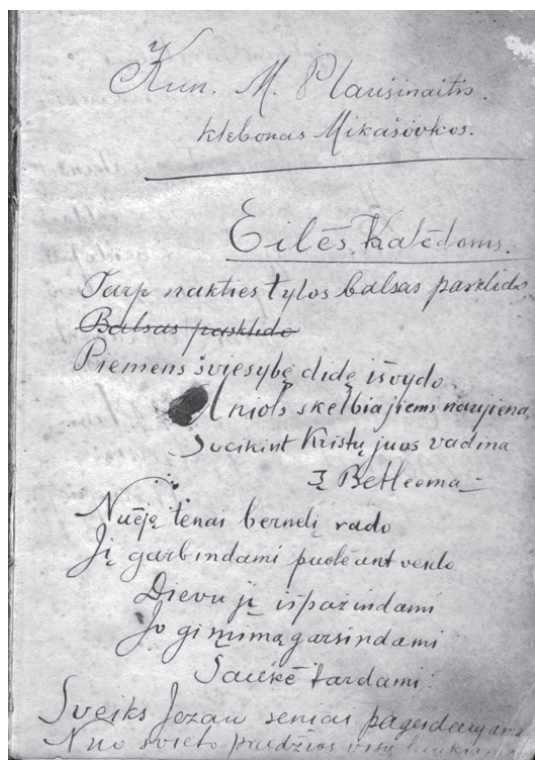 Kun. M. Plausinaitis.
klebonas Mikašovkos.
Eilės Kalėdoms.
Tarp nakties tylos balsas pasklido
Balsas pasklido
Piemens šviesybę didę išvydo.
Aniols skelbia jiems naujiena,
Sveikint Kristų juos vadina
Į Betleema –
Nuėję tenai bernelį rado
Jį garbindami puolė ant veido
Dievu jį išpažindami
Jo gimimą garsindami
Šaukė tardami:
Sveiks Jezau seniai pageidaujams
Nuo svieto pradžios visų